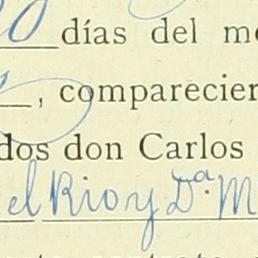 días del me
, comparecier
dos don Carlos
el Rio y Dª. M